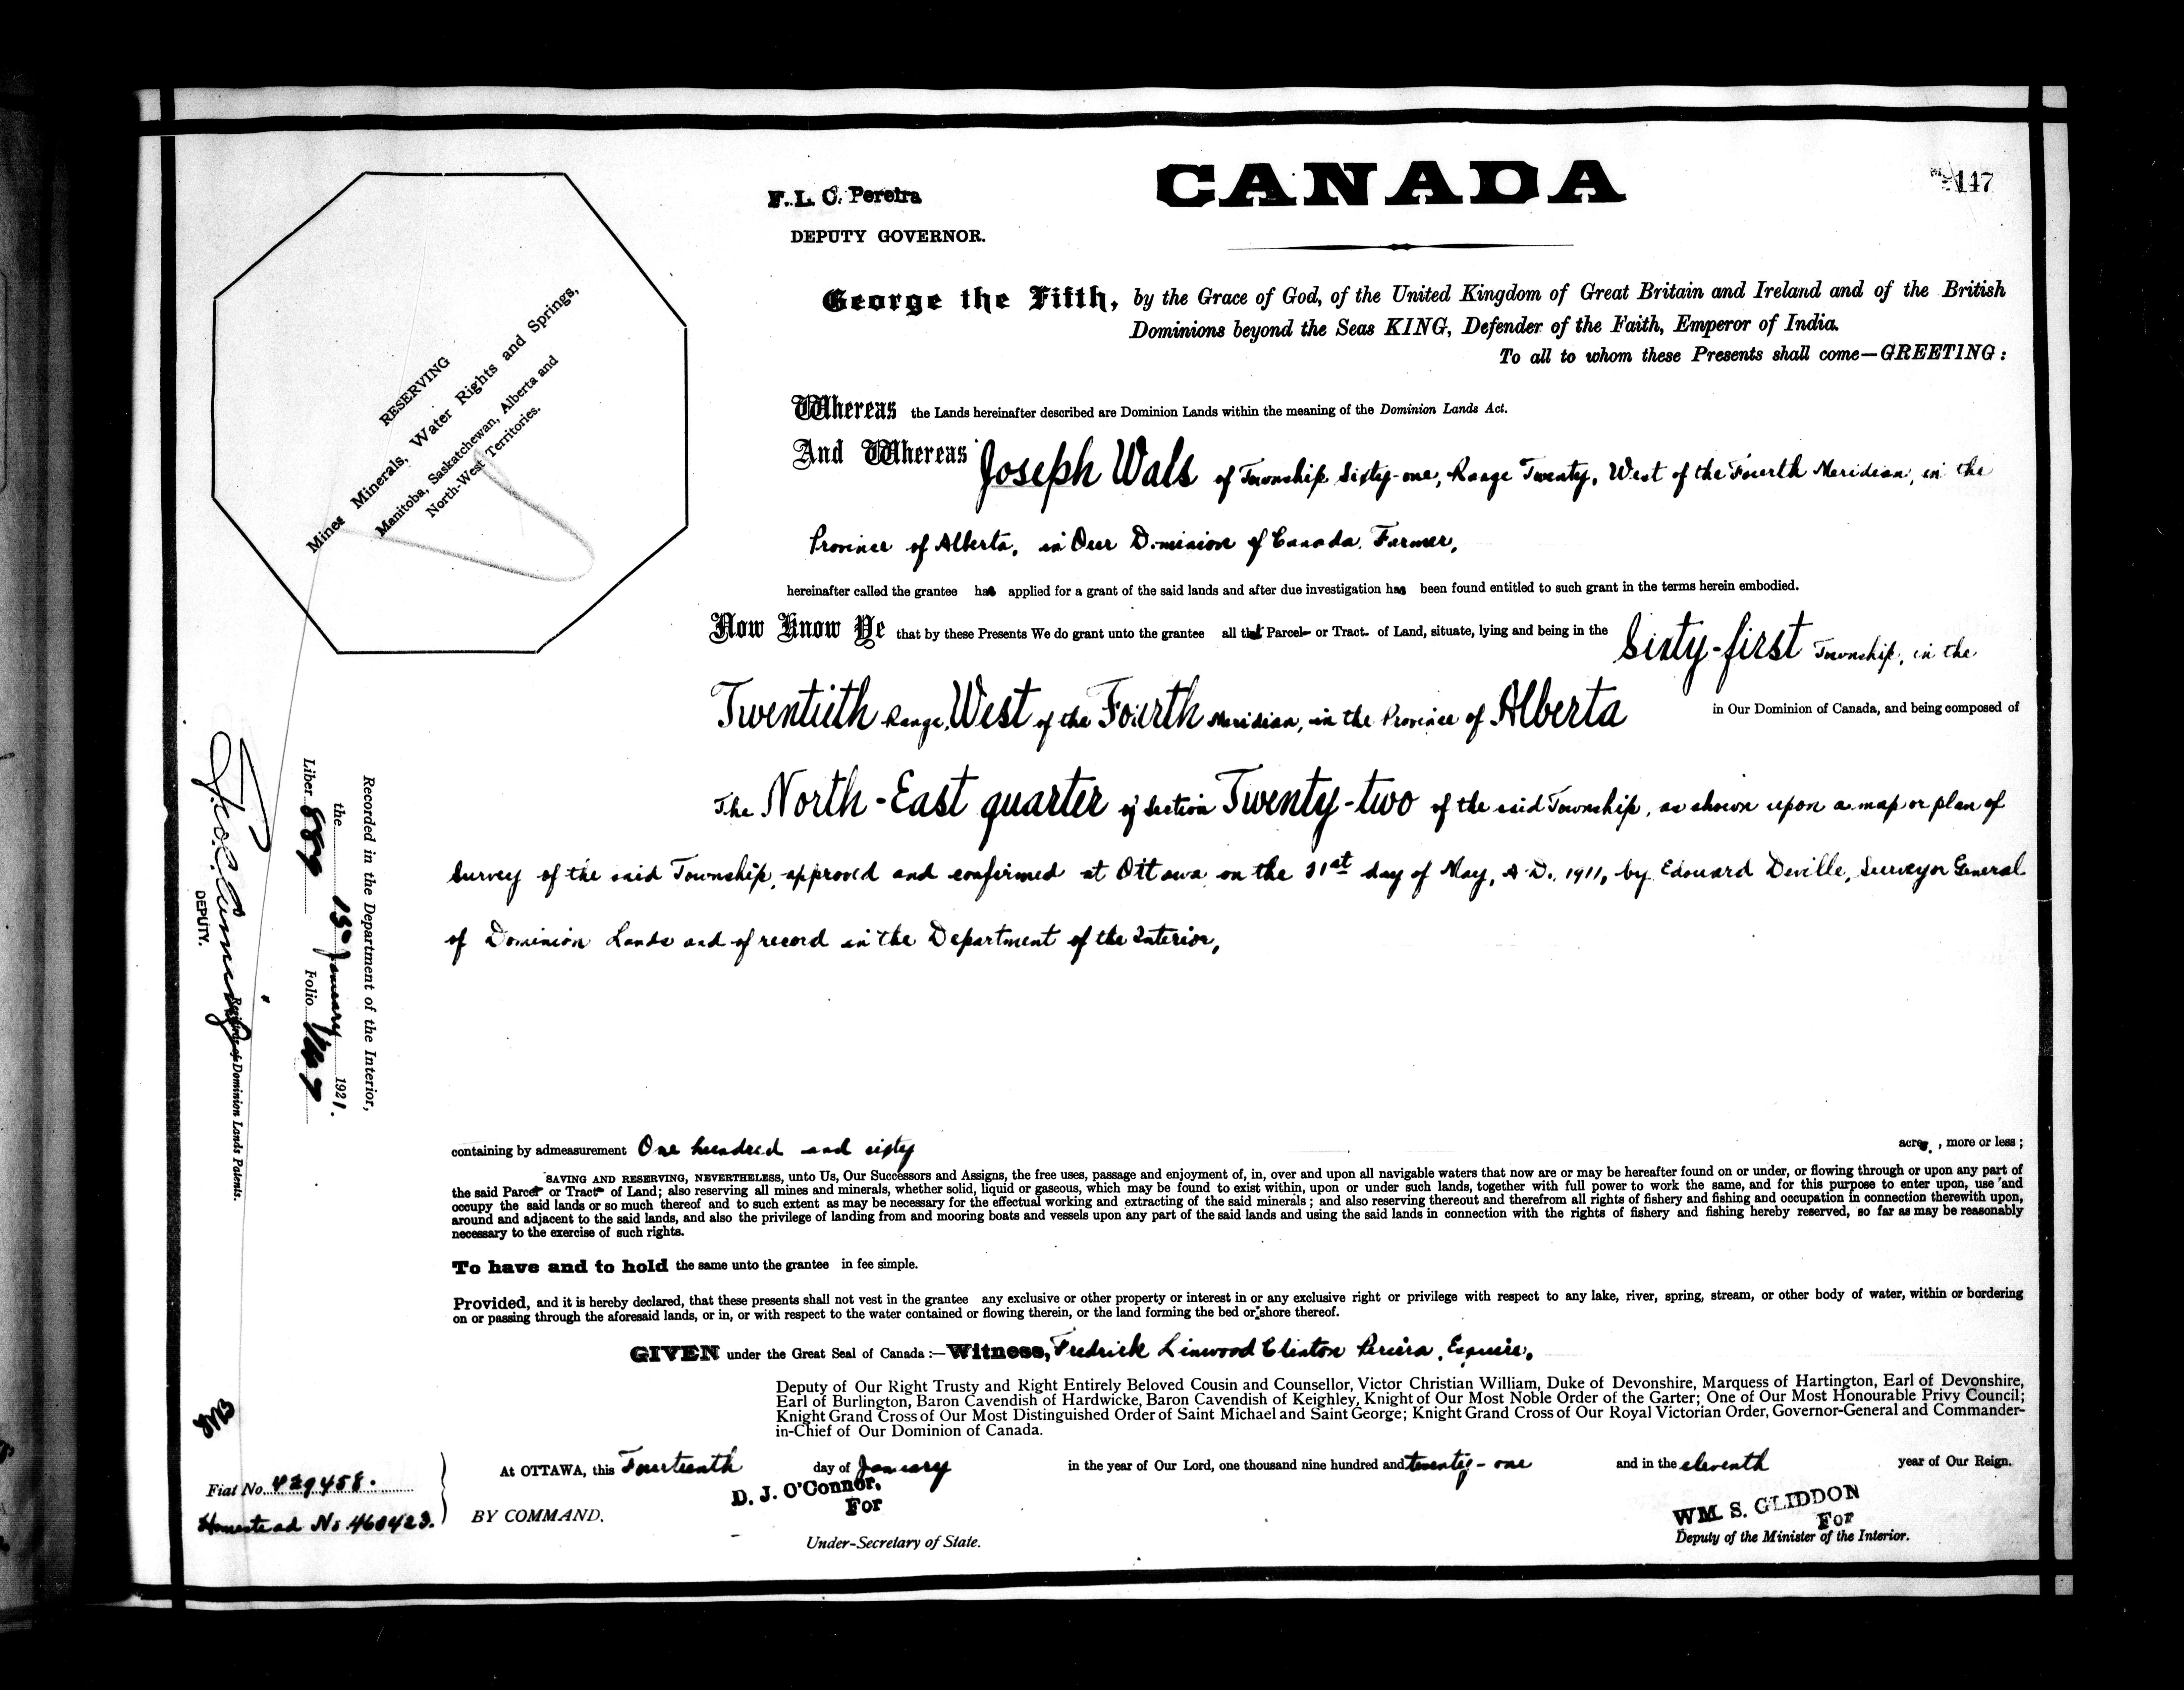 CANADA
147
F. L. C. Pereira
DEPUTY GOVERNOR.
George the Fifth, by the Grace of God, of the United Kingdom of Great Britain and Ireland and of the British
Dominions beyond the Seas KING, Defender of the Faith, Emperor of India.
To all to whom these Presents shall come—GREETING:
RESERVING
Mines Minerals, Water Rights and Springs,
Manitoba, Saskatchewan, Alberta and
North-West Territories.
Whereas the Lands hereinafter described are Dominion Lands within the meaning of the Dominion Lands Act.
And Whereas Joseph Wals of Township Sixty-one, Range Twenty, West of the Fourth Meridian, in the
Province of Alberta, in Our Dominion of Canada, Farmer,
hereinafter called the grantee has applied for a grant of the said lands and after due investigation has been found entitled to such grant in the terms herein embodied.
Now Know Ye that by these Presents We do grant unto the grantee all that Parcel or Tract of Land, situate, lying and being in the Sixty-first Township, in the
Twentieth Range, West of the Fourth Meridian, in the Province of Alberta in Our Dominion of Canada, and being composed of
The North-East quarter of Section Twenty-two of the said Township, as shown upon a map or plan of
Survey of the said Township, approved and confirmed at Ottawa on the 31st day of May, A.D. 1911, by Edouard Deville, Surveyor General
of Dominion Lands and of record in the Department of the Interior,
Recorded in the Department of the Interior,
the 15th January 1921.
Liber 889 Folio 147
DEPUTY.
Registrar of Dominion Lands Patents.
containing by admeasurement One hundred and sixty acres, more or less;
SAVING AND RESERVING, NEVERTHELESS, unto Us, Our Successors and Assigns, the free uses, passage and enjoyment of, in, over and upon all navigable waters that now are or may be hereafter found on or under, or flowing through or upon any part of
the said Parcel or Tract of Land; also reserving all mines and minerals, whether solid, liquid or gaseous, which may be found to exist within, upon or under such lands, together with full power to work the same, and for this purpose to enter upon, use and
occupy the said lands or so much thereof and to such extent as may be necessary for the effectual working and extracting of the said minerals; and also reserving thereout and therefrom all rights of fishery and fishing and occupation in connection therewith upon,
around and adjacent to the said lands, and also the privilege of landing from and mooring boats and vessels upon any part of the said lands and using the said lands in connection with the rights of fishery and fishing hereby reserved, so far as may be reasonably
necessary to the exercise of such rights.
To have and to hold the same unto the grantee in fee simple.
Provided, and it is hereby declared, that these presents shall not vest in the grantee any exclusive or other property or interest in or any exclusive right or privilege with respect to any lake, river, spring, stream, or other body of water, within or bordering
on or passing through the aforesaid lands, or in, or with respect to the water contained or flowing therein, or the land forming the bed or shore thereof.
GIVEN under the Great Seal of Canada:—Witness, Fredrick Linwood Clinton Pereira, Esquire,
Deputy of Our Right Trusty and Right Entirely Beloved Cousin and Counsellor, Victor Christian William, Duke of Devonshire, Marquess of Hartington, Earl of Devonshire,
Earl of Burlington, Baron Cavendish of Hardwicke, Baron Cavendish of Keighley, Knight of Our Most Noble Order of the Garter; One of Our Most Honourable Privy Council;
Knight Grand Cross of Our Most Distinguished Order of Saint Michael and Saint George; Knight Grand Cross of Our Royal Victorian Order, Governor-General and Commander-
in-Chief of Our Dominion of Canada.
At OTTAWA, this Fourteenth day of January in the year of Our Lord, one thousand nine hundred and twenty-one and in the eleventh year of Our Reign.
Fiat No. 429458.
Homestead No 460423.
BY COMMAND,
D. J. O'Connor,
For
Under-Secretary of State.
WM. S. GLIDDON
For
Deputy of the Minister of the Interior.